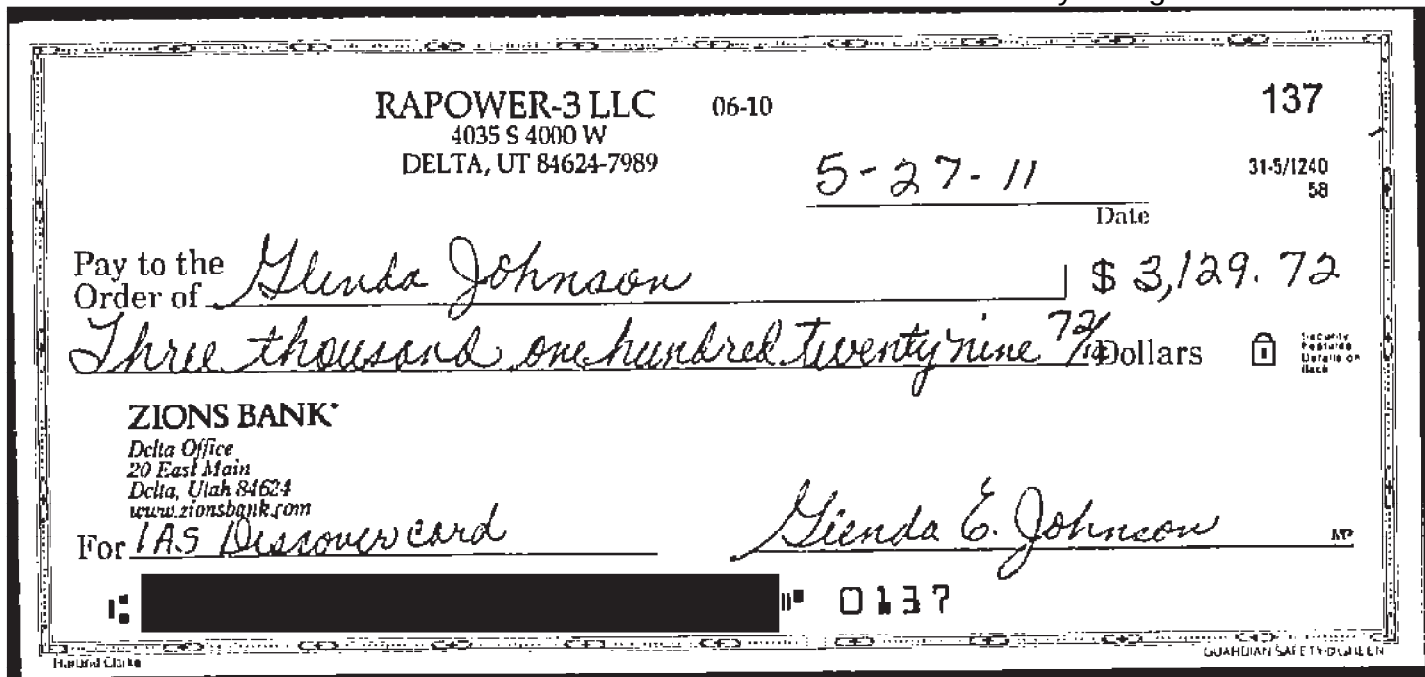 RAPOWER-3 LLC 06-10 137
4035 S 4000 W
DELTA, UT 84624-7989
5-27-11 31-5/1240
58
Date
Pay to the
Order of Glenda Johnson $ 3,129.72
Three thousand one hundred twenty nine 72/100 Dollars
Security
Features
Details on
Back
ZIONS BANK
Delta Office
20 East Main
Delta, Utah 84624
www.zionsbank.com
For IAS Discover card Glenda E. Johnson MP
0137
Harland Clarke GUARDIAN SAFETY